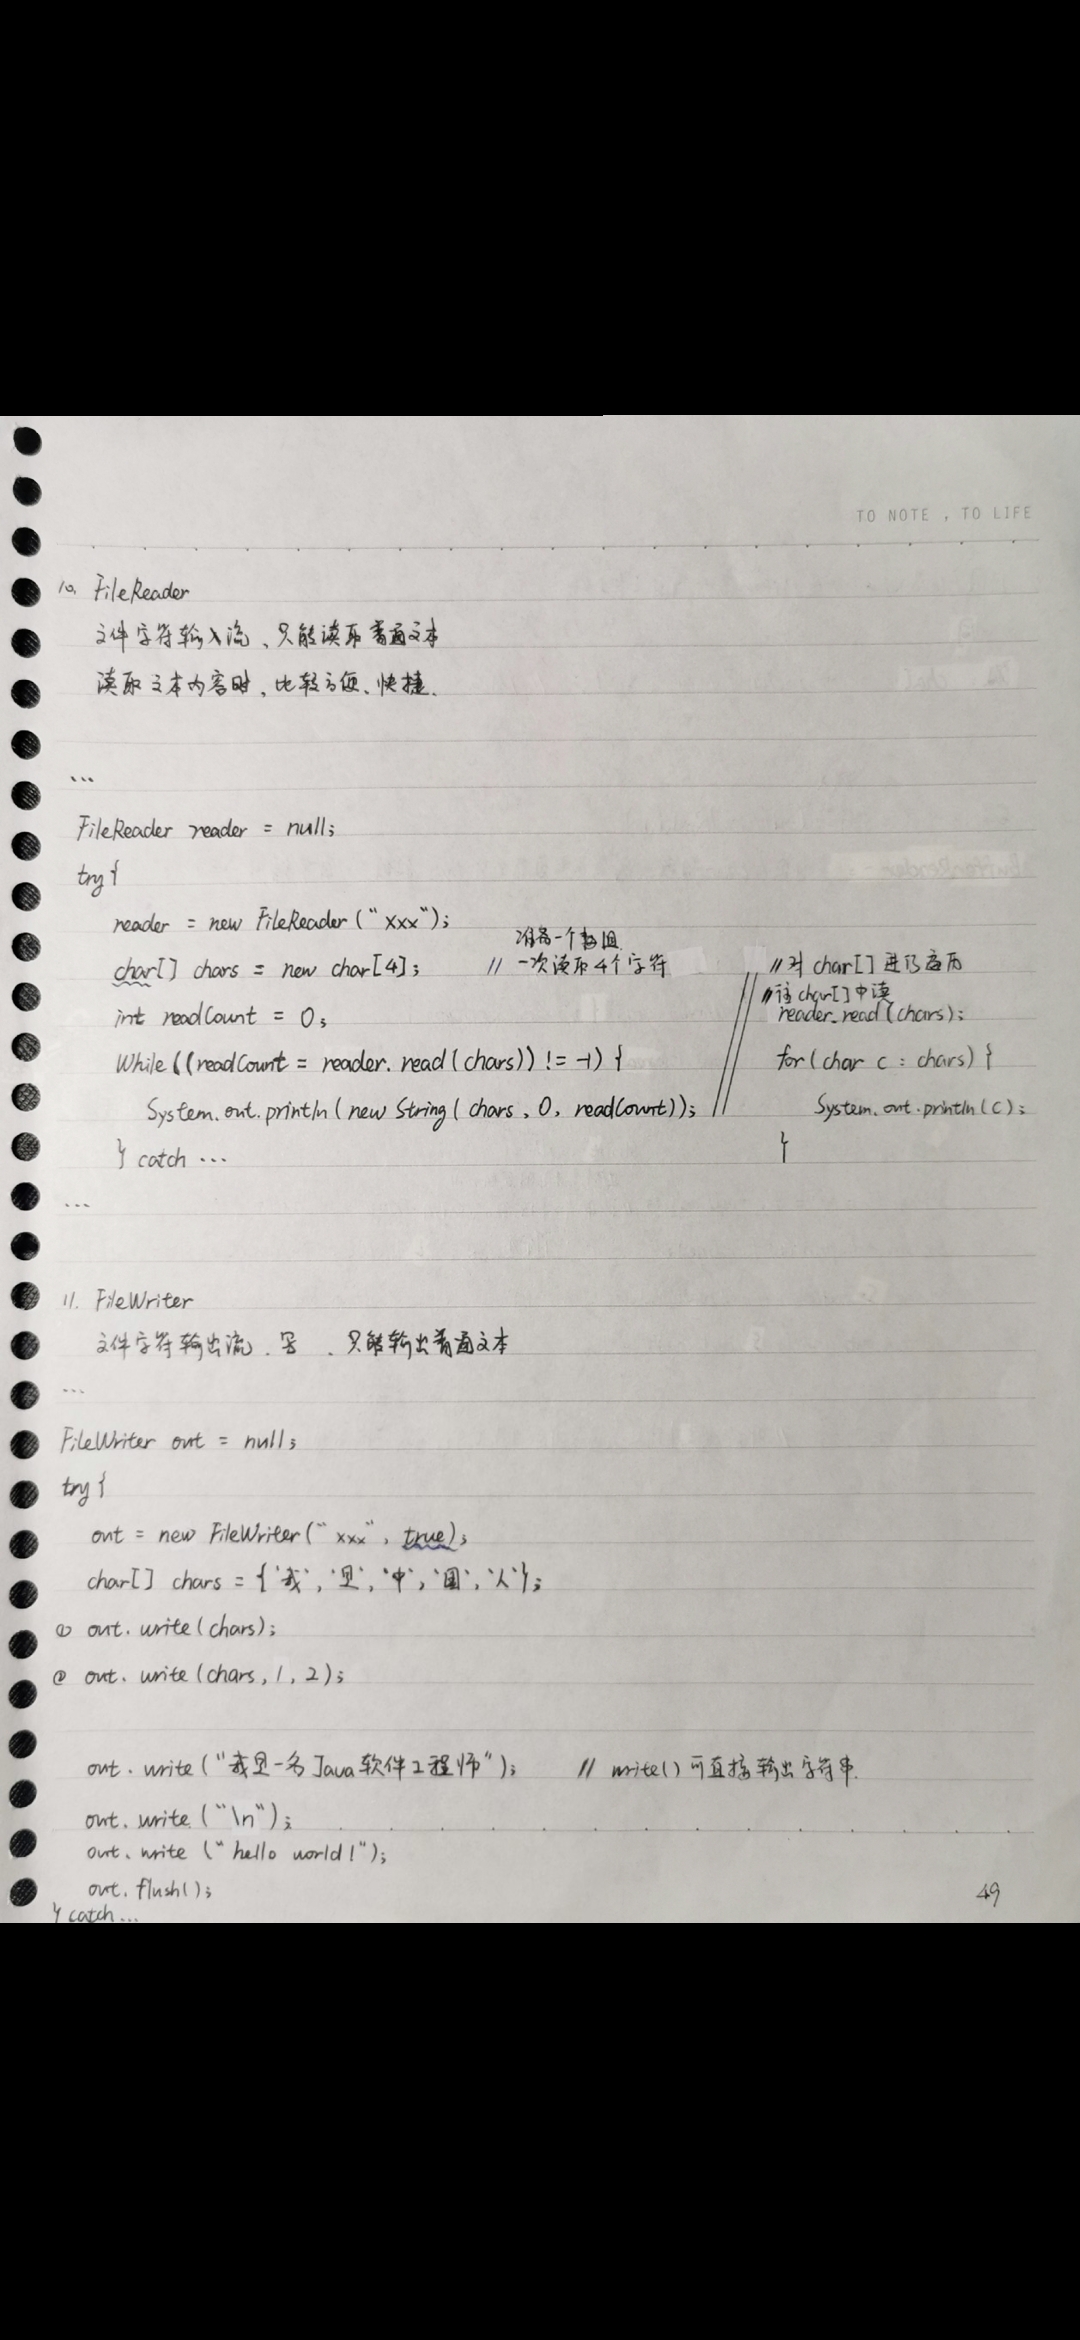 TO NOTE , TO LIFE
10. FileReader
文件字符输入流、只能读取普通文本
读取文本内容时、比较方便、快捷.
...
FileReader reader = null;
try{
reader = new FileReader("xxx");
准备一个数组
char[] chars = new char[4]; // 一次读取4个字符
int readCount = 0;
While((readCount = reader.read(chars)) != -1) {
System.out.println(new String(chars, 0, readCount));
} catch ...
...
//对 char[] 进行遍历
//往 char[] 中读
reader.read(chars);
for(char c : chars) {
System.out.println(c);
}
11. FileWriter
文件字符输出流、写 、只能输出普通文本
...
FileWriter out = null;
try{
out = new FileWriter("xxx", true);
char[] chars = {'我','是','中','国','人'};
① out.write(chars);
② out.write(chars, 1, 2);
out.write("我是一名Java软件工程师"); // write()可直接输出字符串.
out.write("\n");
out.write("hello world!");
out.flush();
} catch...
49